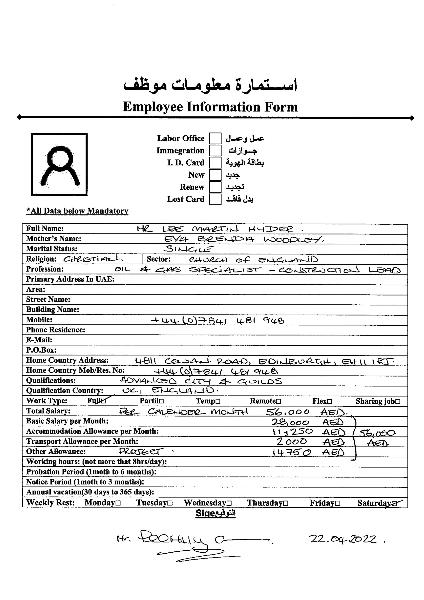 استمارة معلومات موظف
Employee Information Form
Labor Office عمل وعمال
Immegration جوازات
I. D. Card بطاقة الهوية
New جديد
Renew تجديد
Lost Card بدل فاقد
*All Data below Mandatory
Full Name: MR LEE MARTIN HYDER.
Mother's Name: EVA BRENDA WOODLEY.
Marital Status: SINGLE
Religion: CHRISTIAN. Sector: CHURCH OF ENGLAND
Profession: OIL & GAS SPECIALIST - CONSTRUCTION LEAD
Primary Address In UAE:
Area:
Street Name:
Building Name:
Mobile: +44(0)7841 481 948
Phone Residence:
E-Mail:
P.O.Box:
Home Country Address: ROAD, EDINBURGH,
Home Country Mob/Res. No: +44(0)7841 481 948
Qualifications: ADVANCED CITY & GUILDS
Qualification Country: UK, ENGLAND.
Work Type: Full Part Temp Remote Flex Sharing job
Total Salary: PER CALENDER MONTH 56,000 AED
Basic Salary per Month: 28,000 AED
Accommodation Allowance per Month: 11,250 AED 56,000
Transport Allowance per Month: 2000 AED AED
Other Allowance: PROJECT. 14750 AED
Working hours: (not more that 8hrs/day):
Probation Period (1moth to 6 months):
Notice Period (1moth to 3 months):
Annual vacation(30 days to 365 days):
Weekly Rest: Monday Tuesday Wednesday Thursday Friday Saturday
Sige التوقيع
Mr. 22.04.2022.